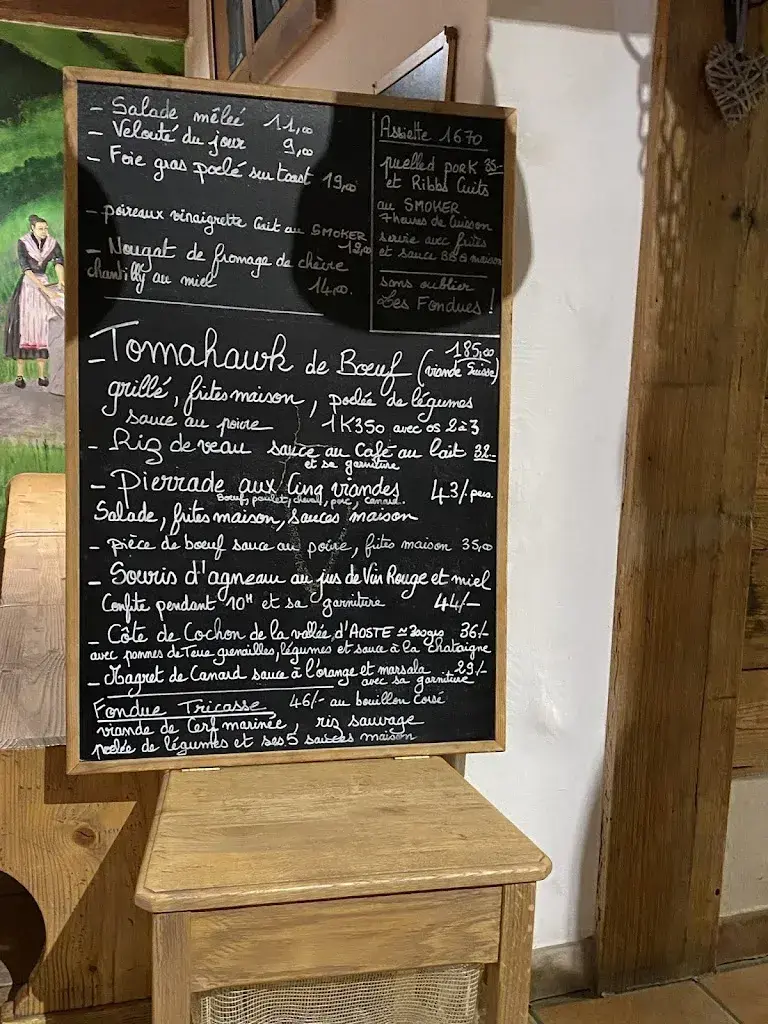 - Salade mêlée 11,00
- Velouté du jour 9,00
- Foie gras poêlé sur toast 19,00
- poireaux vinaigrette Cuit au SMOKER 12,00
- Nougat de fromage de chèvre
chantilly au miel 14,00.
Assiette 1670
puelled pork 35.-
et Ribbs Cuits
au SMOKER
7 heures de Cuisson
servie avec frites
et sauce BBQ maison
sans oublier
Les Fondues !
- Tomahawk de Bœuf (viande Suisse) 185,00
grillé, frites maison, poêlée de légumes
sauce au poivre 1K350 avec os 2 à 3
- Riz de veau sauce au Café au lait 32.-
et sa garniture
- Pierrade aux Cinq viandes 43/pers.
Bœuf, poulet, cheval, porc, canard.
Salade, frites maison, sauces maison
- pièce de bœuf sauce au poivre, frites maison 35,00
- Souris d'agneau au jus de Vin Rouge et miel
Confite pendant 10H et sa garniture 44/-
- Côte de Cochon de la vallée d'AOSTE ≃ 300grs 36/-
avec pommes de Terre grenailles, légumes et sauce à la chataigne
- Magret de Canard sauce à l'orange et marsala 29/-
avec sa garniture
Fondue Tricasse 46/- au bouillon Corsé
viande de Cerf marinée, riz sauvage
poêlée de légumes et ses 5 sauces maison